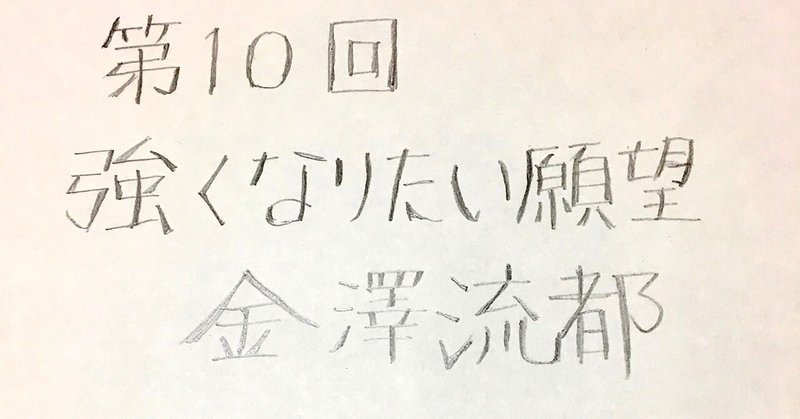 第10回
強くなりたい願望
金澤流都